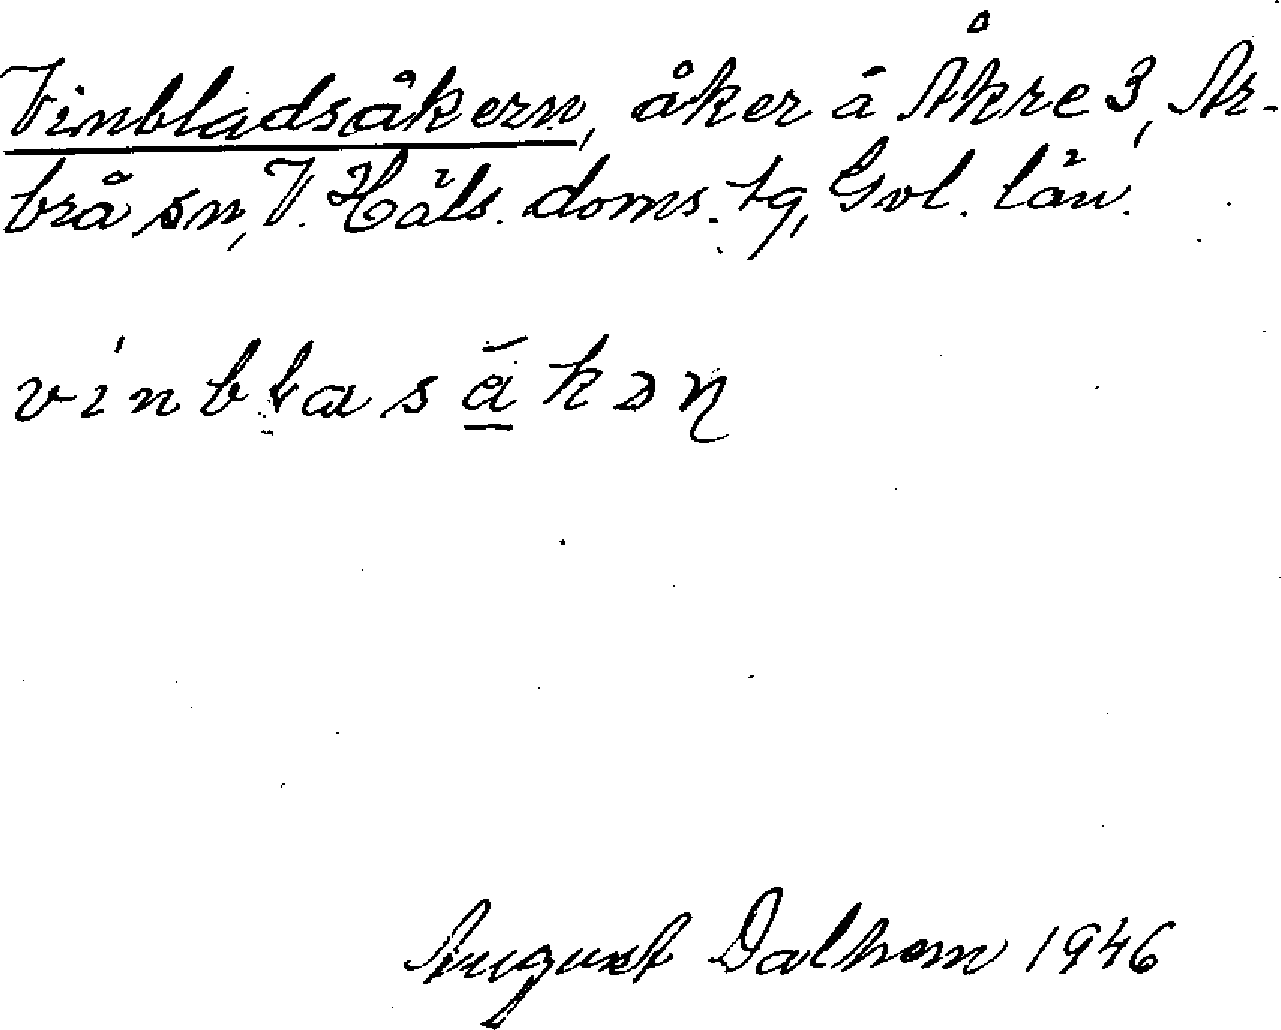 Vinbladsåkern, åker å Åkre 3, Ar-
brå sn, V. Häls. doms. tg, Gvl. län.
vinblasåkəɳ
August Dalhem 1946